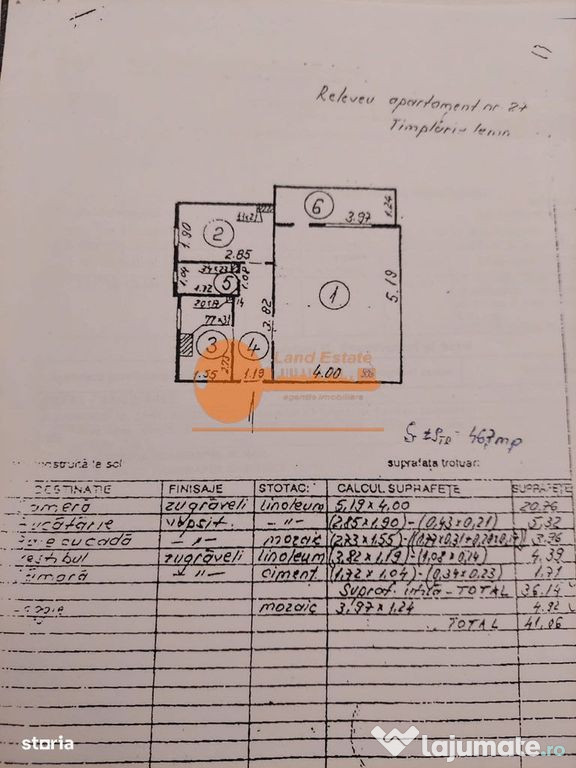 Releveu apartament nr 27
Timplăriu lemn
6
3.97
1.24
2
1.90
2.85
1.04
5
1.72
1.08
1
5.19
3.82
14
3
1.55
2.73
4
1.19
4.00
Land Estate
agenție imobiliare
467mp
construită la sol
suprafața trotuar:
DESTINAȚIE FINISAJE STOTAC: CALCUL SUPRAFEȚE SUPRAFEȚE
cameră zugrăveli linoleum 5,19 x 4.00 20.76
bucătărie vopsit -"- (2.85 x 1.90) - (0,43 x 0,21) 5,32
Baie cu cadă -"- mozaic (2.73 x 1.55) 3.96
vestibul zugrăveli linoleum (3.82 x 1.19) - (1,08 x 0,14) 4.39
cămară -"- ciment (1.72 x 1.04) - (0,34 x 0.23) 1.71
Supraf. utilă - TOTAL 36.14
mozaic 3.97 x 1.24 4.92
TOTAL 41.06
storia
lajumate.ro